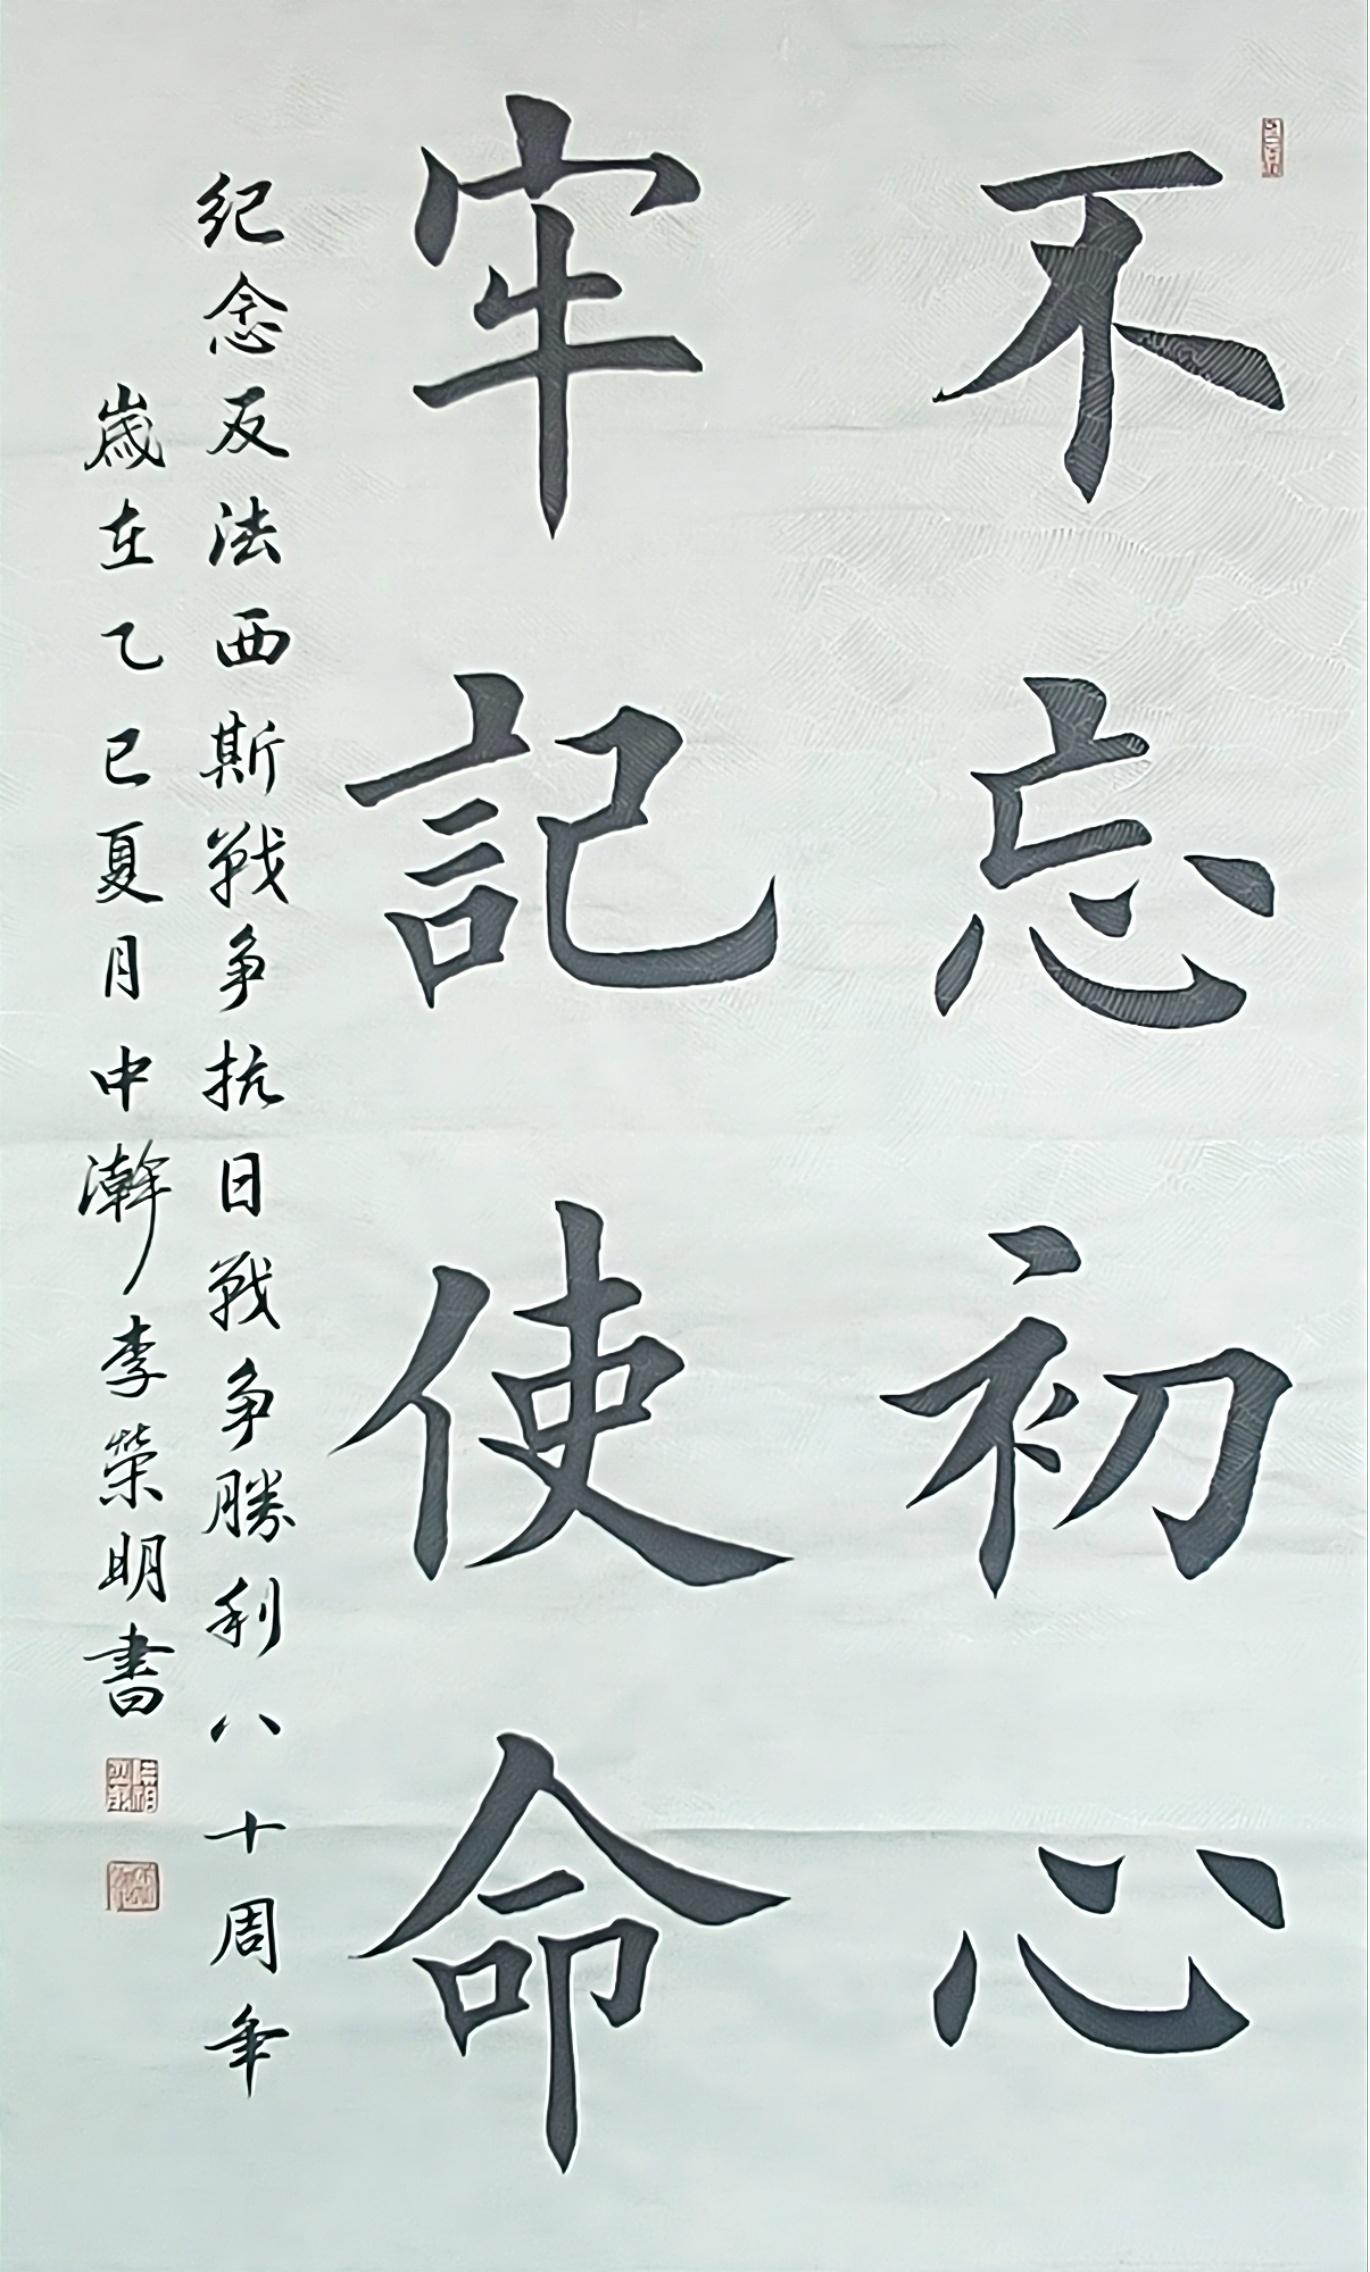 不忘初心
牢記使命
纪念反法西斯戰争抗日戰争勝利八十周年
歲在乙巳夏月中瀚李榮明書